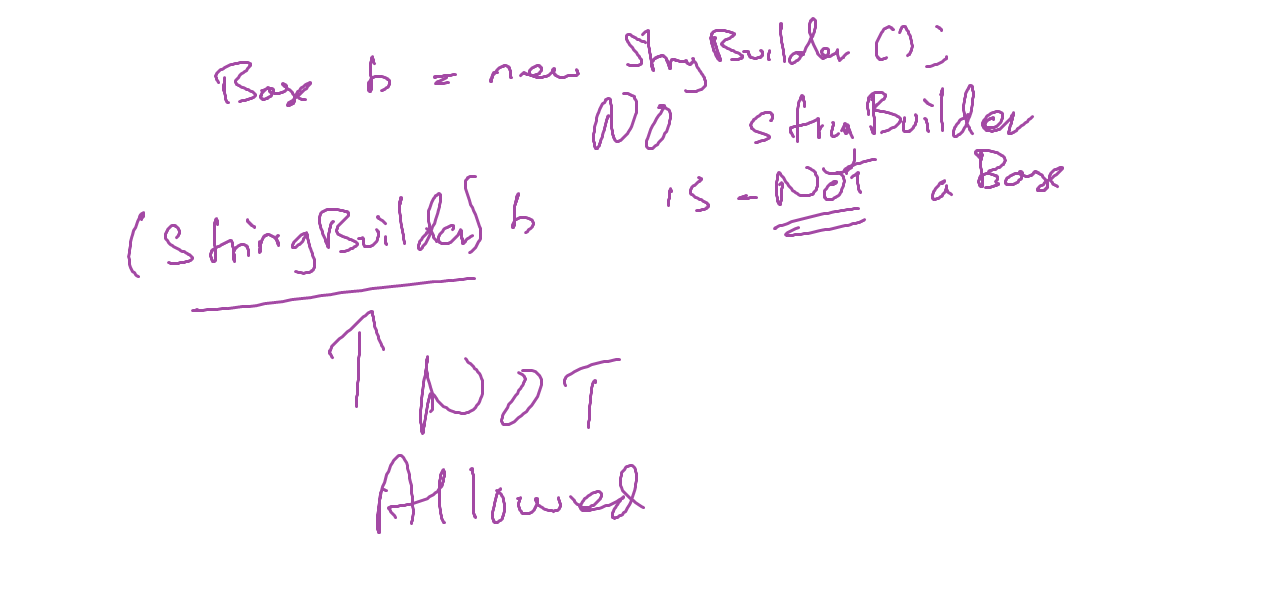 Base b = new StringBuilder();
NO StringBuilder
is-NOT a Base
(StringBuilder) b
NOT
Allowed